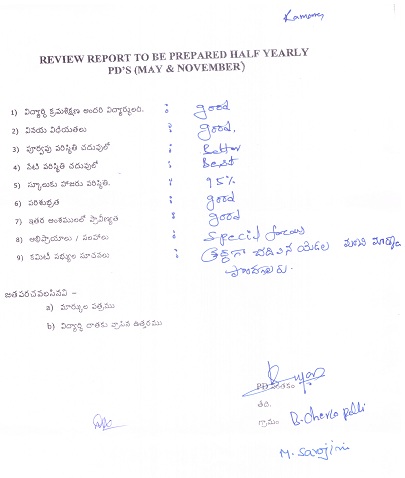 Kamomy
REVIEW REPORT TO BE PREPARED HALF YEARLY
PD'S (MAY & NOVEMBER)
1) విద్యార్థి క్రమశిక్షణ అందరి విద్యార్థులది. : good
2) వినయ విధేయతలు : good.
3) పూర్వపు పరిస్థితి చదువులో : Better
4) నేటి పరిస్థితి చదువులో : Best
5) స్కూలుకు హాజరు పరిస్థితి. : 95%
6) పరిశుభ్రత : good
7) ఇతర అంశములలో ప్రావీణ్యత : good
8) అభిప్రాయాలు / సలహాలు : Special focus
9) కమిటీ సభ్యుల సూచనలు : శ్రద్ధగా చదివిన యెడల మంచి మార్కులు
పొందగలరు.
జతపరచవలసినవి –
a) మార్కుల పత్రము
b) విద్యార్థి దాతకు వ్రాసిన ఉత్తరము
PD సంతకం
తేది.
గ్రామం B. Cherlopalli
M. Sarojini